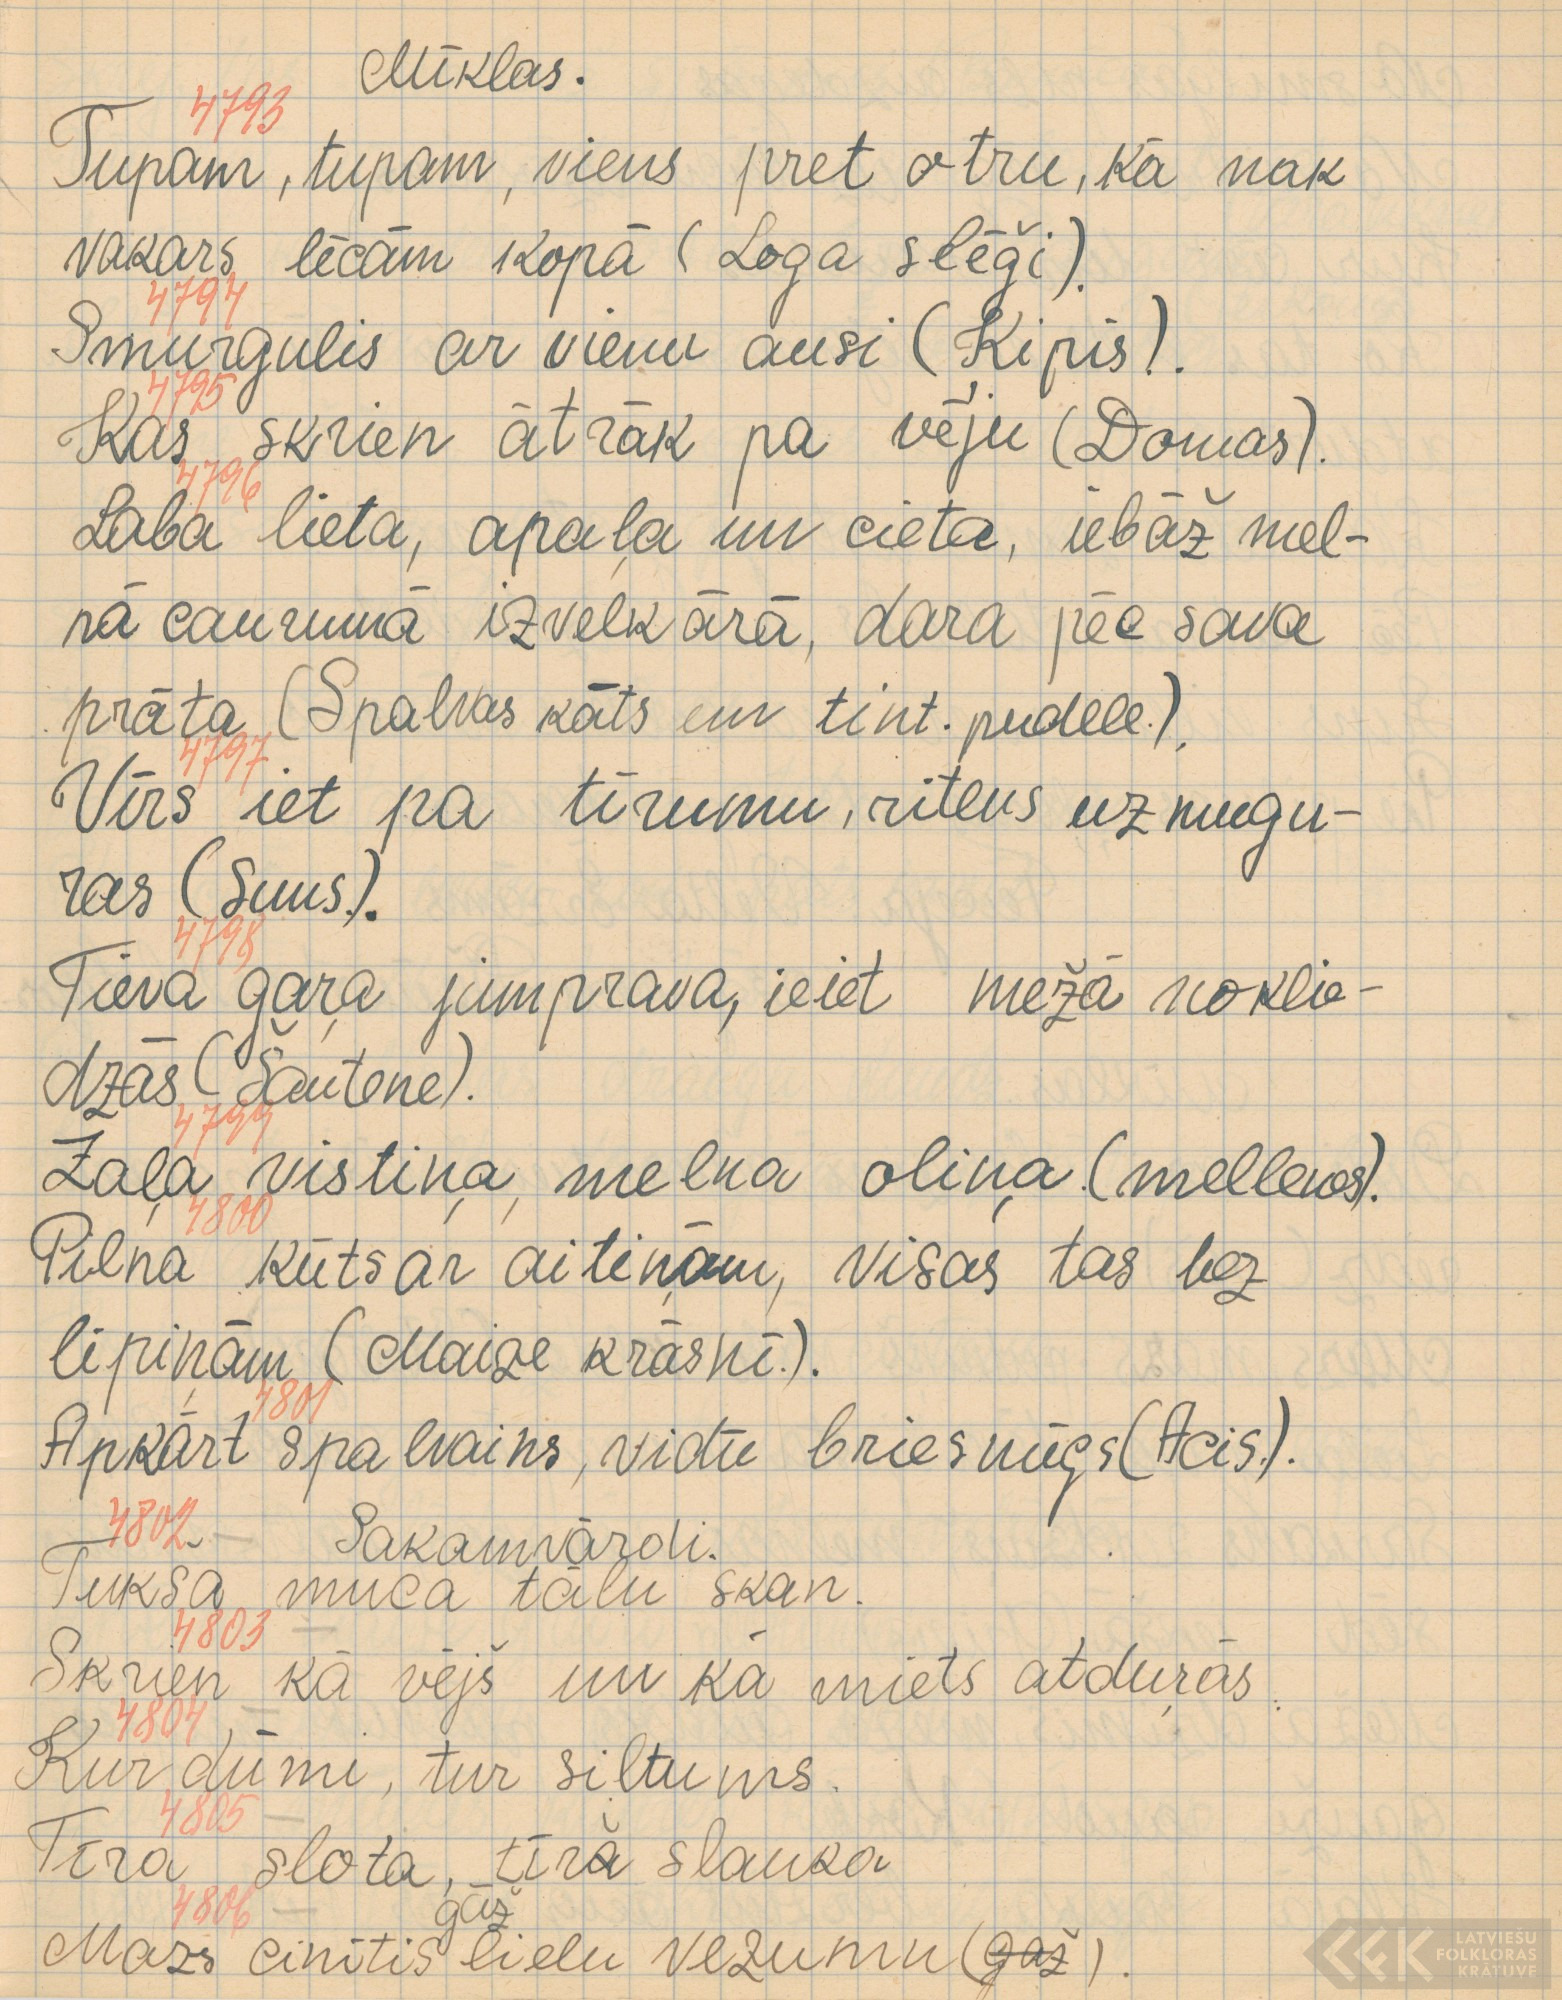 Mīklas.
4793
Tupam, tupam, viens pret otru, kā nak
vakars lēcām kopā (Loga slēģi).
4794
Smurgulis ar vienu ausi (Ķipis).
4795
Kas skrien ātrāk pa vēju (Domas).
4796
Laba lieta, apaļa un cieta, iebāž mel-
nā caurumā izvelk ārā, dara pēc sava
prāta (Spalvas kāts un tint. pudele.).
4797
Vīrs iet pa tīrumu, ritens uz mugu-
ras (Suns.).
4798
Tieva gaŗa jumprava, ieiet mežā noklie-
dzās (Šautene).
4799
Zaļa vistiņa, melna oliņa (mellenes).
4800
Pilna kūts ar aitiņām, visas tas bez
lipiņām (Maize krāsnī.).
4801
Apkārt spalvains, vidū briesmīgs (Acis.).
4802
Sakamvārdi.
Tukša muca tālu skan.
4803
Skrien kā vējš un kā miets atduŗās.
4804
Kur dūmi, tur siltums.
4805
Tīra slota, tīrā slauka
4806
gāž
Mazs cinītis lielu vezumu (gaž).
LATVIEŠU
FOLKLORAS
KRĀTUVE